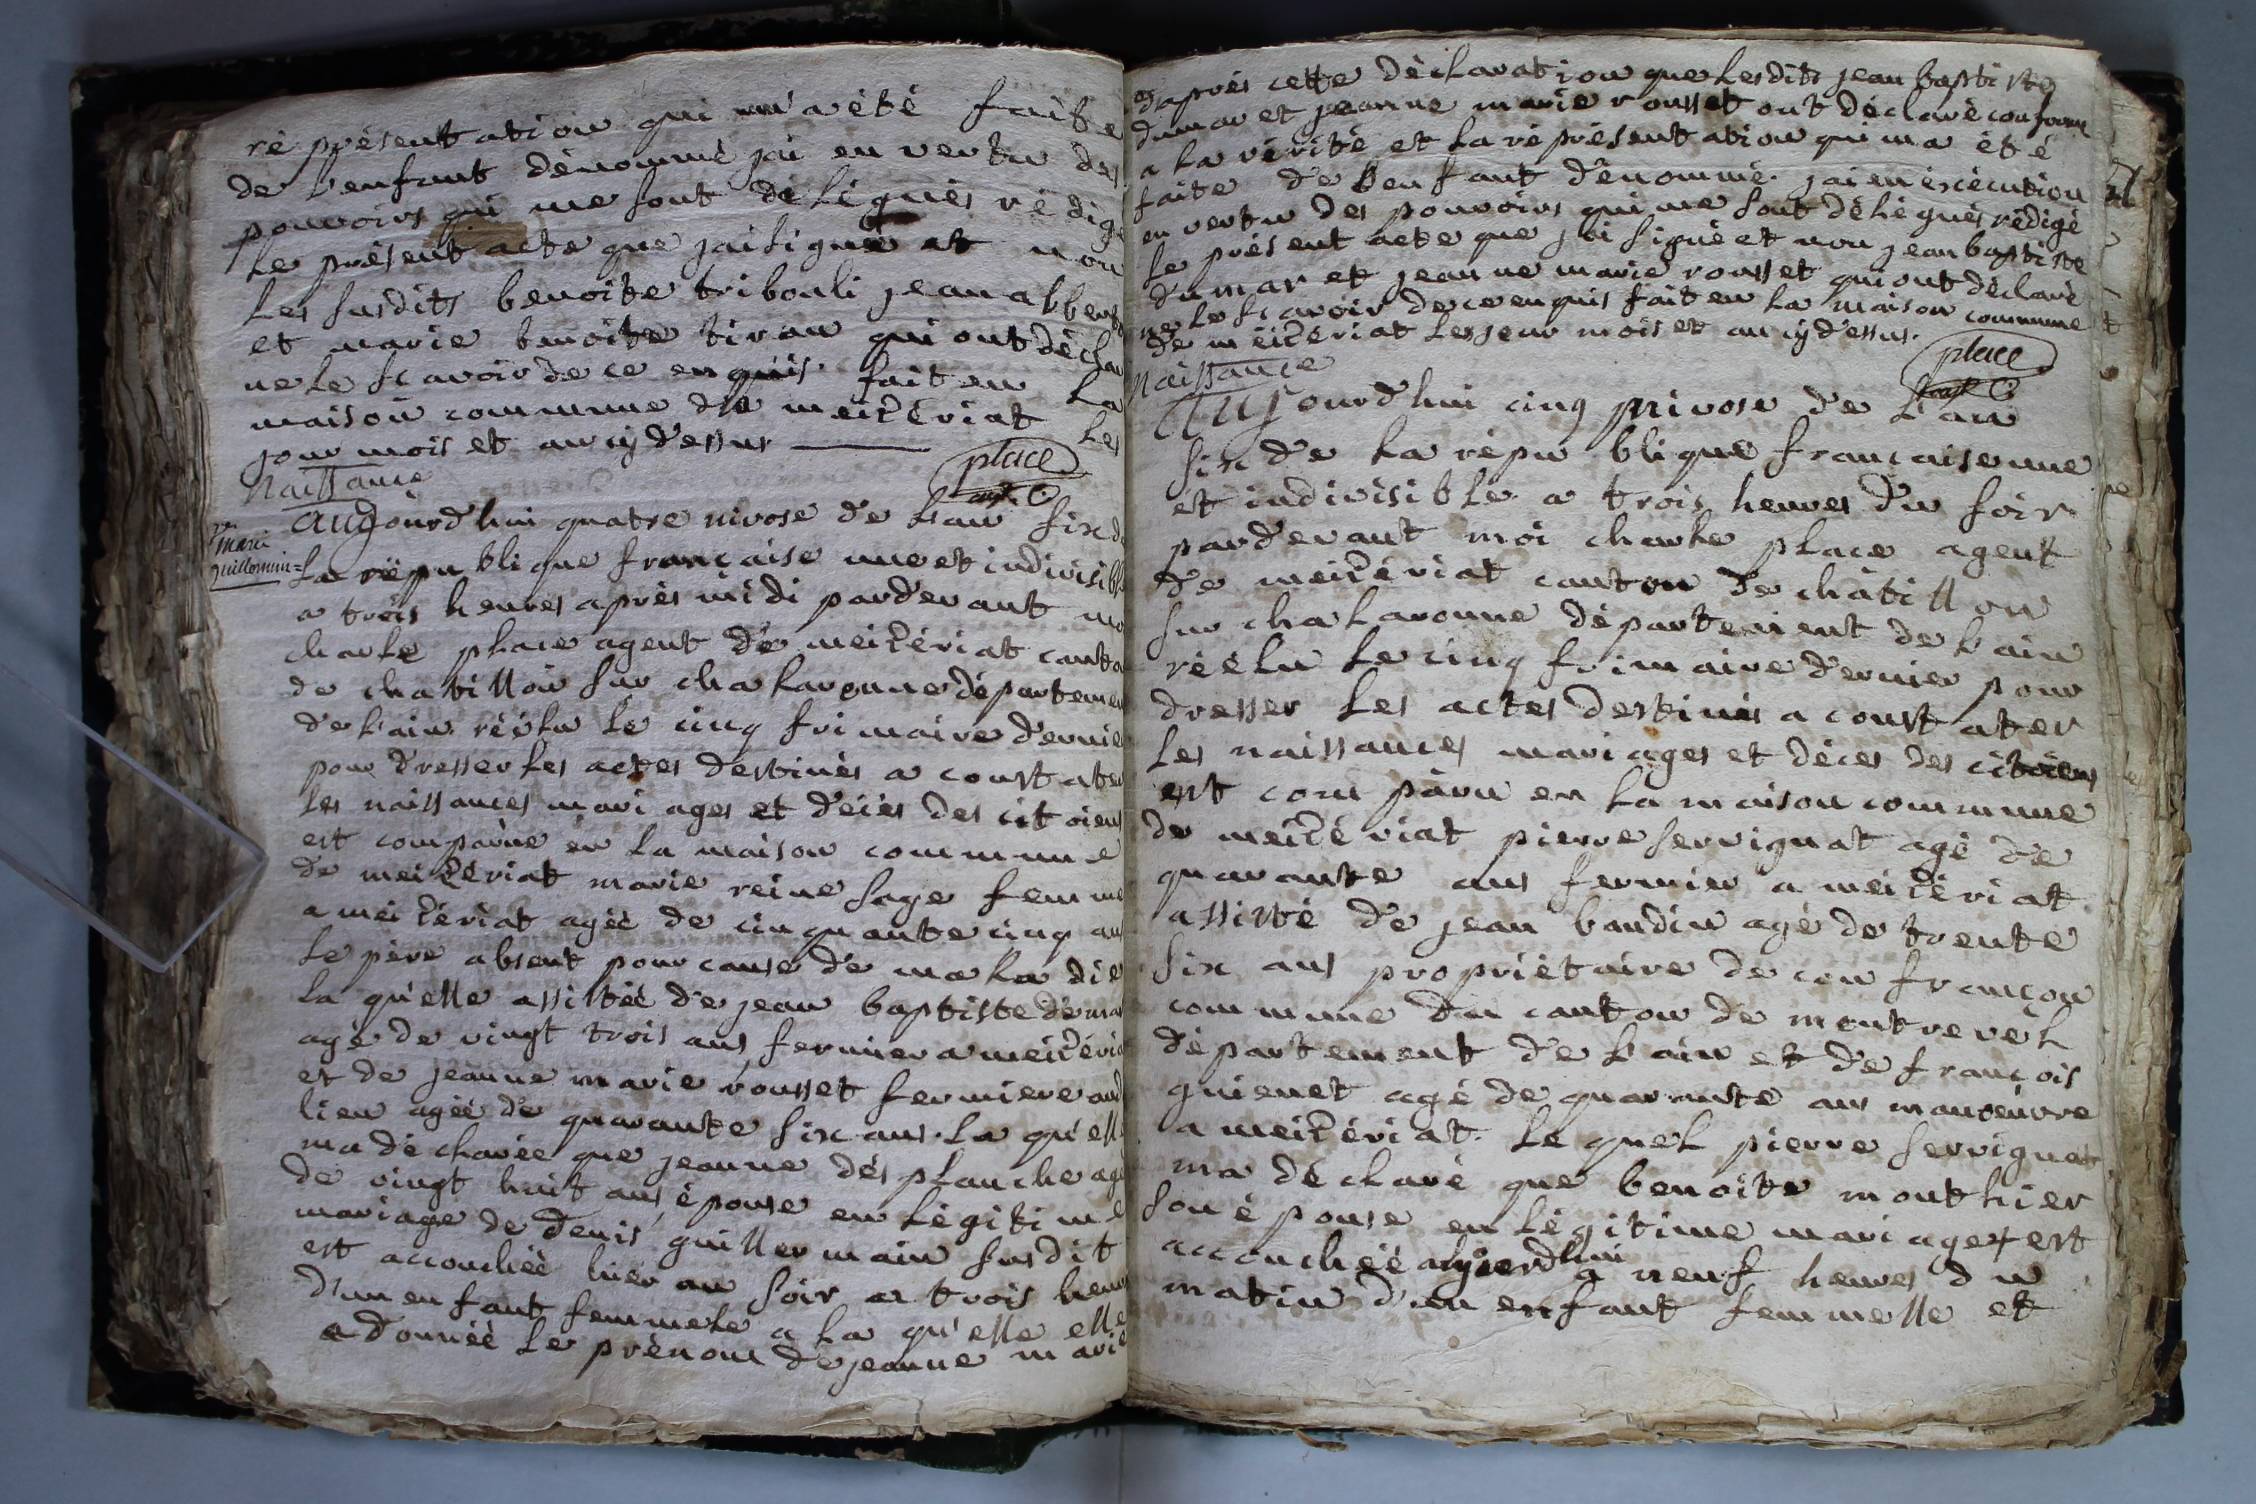 réprésentation qui m'a été faite
de l'enfant dénommé jai en vertu des
pouvoirs qui me sont délégués rédigé
le présent acte que jai signé et non
les susdits benoite tribouli jean albert
et marie benoite tiran qui ont déclar
ne le scavoir de ce enquis. fait en la
maison commune de meizériat les
jour mois et an cy dessus
place
agt C.
Naissance
marie
guillermin =
Aujourd'hui quatre nivose de l'an six de
la république française une et indivisible
a trois heures après midi pardevant mo
charle place agent de meizériat canto
de chatillon sur chalaronne départemen
de l'ain réélu le cinq frimaire dernie
pour dresser les actes destinés a constater
les naissances mariages et décés des citoiens
est comparue en la maison commune
de meizériat marie reine sage femme
a meizériat agée de cinquante cinq ans
le père absent pour cause de maladie
la qu'elle assistée de jean baptiste dumar
agé de vingt trois ans fermier a meizéria
et de jeanne marie rousset fermiere aud
lieu agée de quarante six ans. la qu'elle
ma déclarée que jeanne dés planche agé
de vingt huit ans épouse en légitime
mariage de denis guillermain susdit
est accouchée hier au soir a trois heur
d'un enfant femmele a la qu'elle elle
a donnée le prénom de jeanne marie
d'après cette déclaration que lesdits jean baptiste
dumar et jeanne marie rousset ont déclaré conforme
a la vérité et la réprésentation qui ma été
faite de l'enfant dénommé. jai en éxécution
en vertu des pouvoirs qui me sont délégués rédigé
le présent acte que jai signé et non jean baptiste
dumar et jeanne marie rousset qui ont déclaré
ne le scavoir de ce enquis fait en la maison commune
de meizériat les jour mois et an cy dessus.
place
agt C.
Naissance
Aujourd'hui cinq nivose de l'an
six de la république française une
et indivisible a trois heures du soir
pardevant moi charle place agent
de meizériat canton de châtillon
sur chalaronne département de l'ain
réélu le cinq frimaire dernier pour
dresser les actes destinés a constater
les naissances mariages et décés des citoiens
est comparu en la maison commune
de meizériat pierre servignat agé de
quarante ans fermier a meizériat
assisté de jean baudin agé de trente
six ans propriétaire de confrançon
commune du canton de montrevel
département de l'ain et de françois
guienet agé de quarante ans maneuvre
a meizériat. le quel pierre servignat
ma déclaré que benoite monthier
son épouse en légitime mariage est
accouchée aujourd'hui a neuf heures du
matin d'un enfant femmelle et